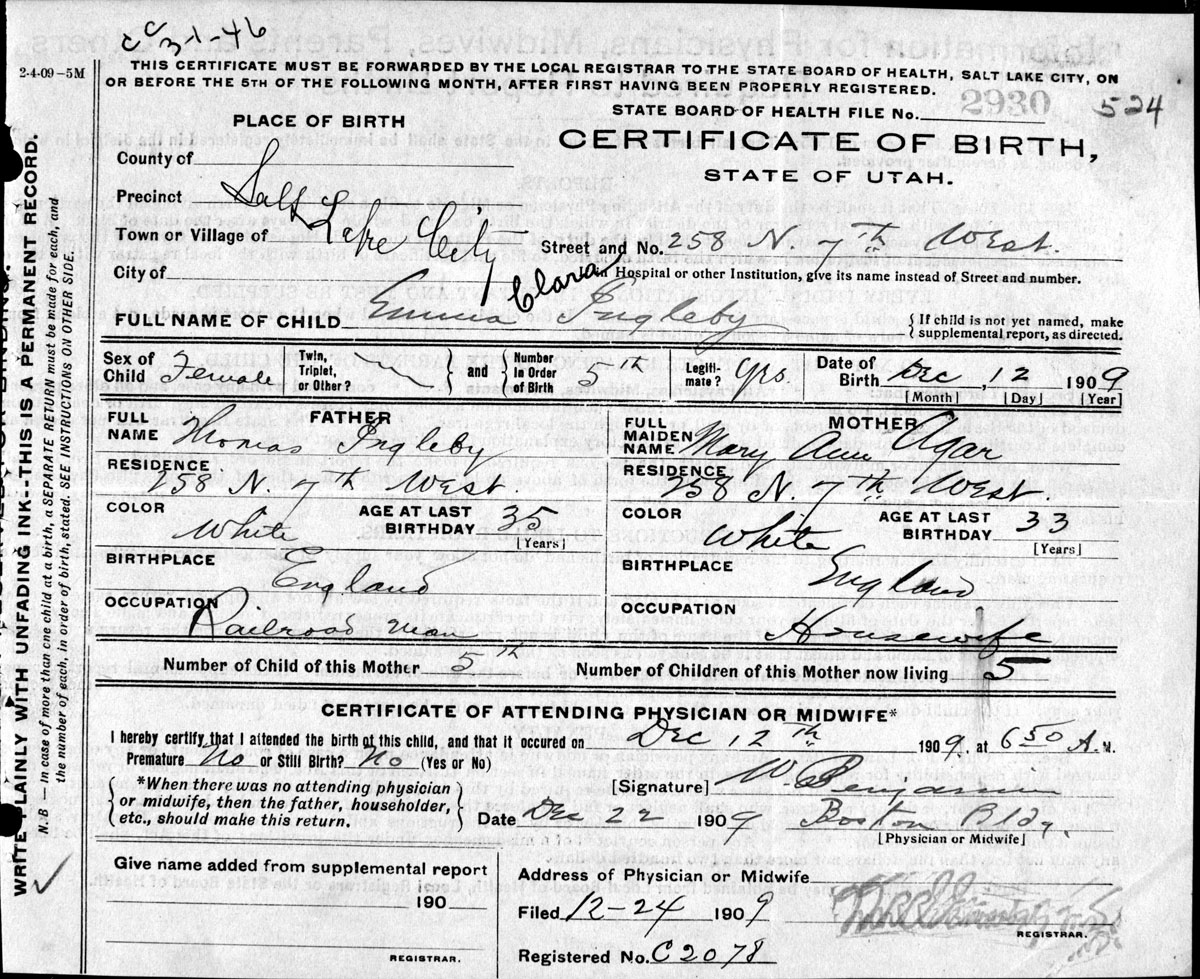 CC 3-1-46
2-4-09-5M
THIS CERTIFICATE MUST BE FORWARDED BY THE LOCAL REGISTRAR TO THE STATE BOARD OF HEALTH, SALT LAKE CITY, ON
OR BEFORE THE 5TH OF THE FOLLOWING MONTH, AFTER FIRST HAVING BEEN PROPERLY REGISTERED.
STATE BOARD OF HEALTH FILE No. 2930 524
PLACE OF BIRTH
CERTIFICATE OF BIRTH,
STATE OF UTAH.
County of
Precinct
Town or Village of Salt Lake City
Street and No. 258 N. 7th West.
City of
in Hospital or other Institution, give its name instead of Street and number.
FULL NAME OF CHILD Emma Clara Ingleby
{ If child is not yet named, make
supplemental report, as directed.
Sex of Child Female
Twin, Triplet, or Other? } and { Number in Order of Birth 5th
Legitimate? Yes.
Date of Birth Dec, 12 1909
[Month] [Day] [Year]
FATHER
FULL NAME Thomas Ingleby
RESIDENCE 258 N. 7th West.
COLOR White
AGE AT LAST BIRTHDAY 35
[Years]
BIRTHPLACE England
OCCUPATION Railroad man
MOTHER
FULL MAIDEN NAME Mary Ann Agar
RESIDENCE 258 N. 7th West.
COLOR White
AGE AT LAST BIRTHDAY 33
[Years]
BIRTHPLACE England
OCCUPATION Housewife
Number of Child of this Mother 5th
Number of Children of this Mother now living 5
CERTIFICATE OF ATTENDING PHYSICIAN OR MIDWIFE*
I hereby certify that I attended the birth of this child, and that it occured on Dec 12th 1909, at 6 50 A. M.
Premature No or Still Birth? No (Yes or No)
{ *When there was no attending physician
or midwife, then the father, householder,
etc., should make this return. }
[Signature] W Benjamin
Date Dec 22 1909 Boston Bldg.
[Physician or Midwife]
Give name added from supplemental report
190
REGISTRAR.
Address of Physician or Midwife
Filed 12-24 1909
REGISTRAR.
Registered No. C2078
WRITE PLAINLY WITH UNFADING INK--THIS IS A PERMANENT RECORD.
N.B — In case of more than one child at a birth, a SEPARATE RETURN must be made for each, and
the number of each, in order of birth, stated. SEE INSTRUCTIONS ON OTHER SIDE.